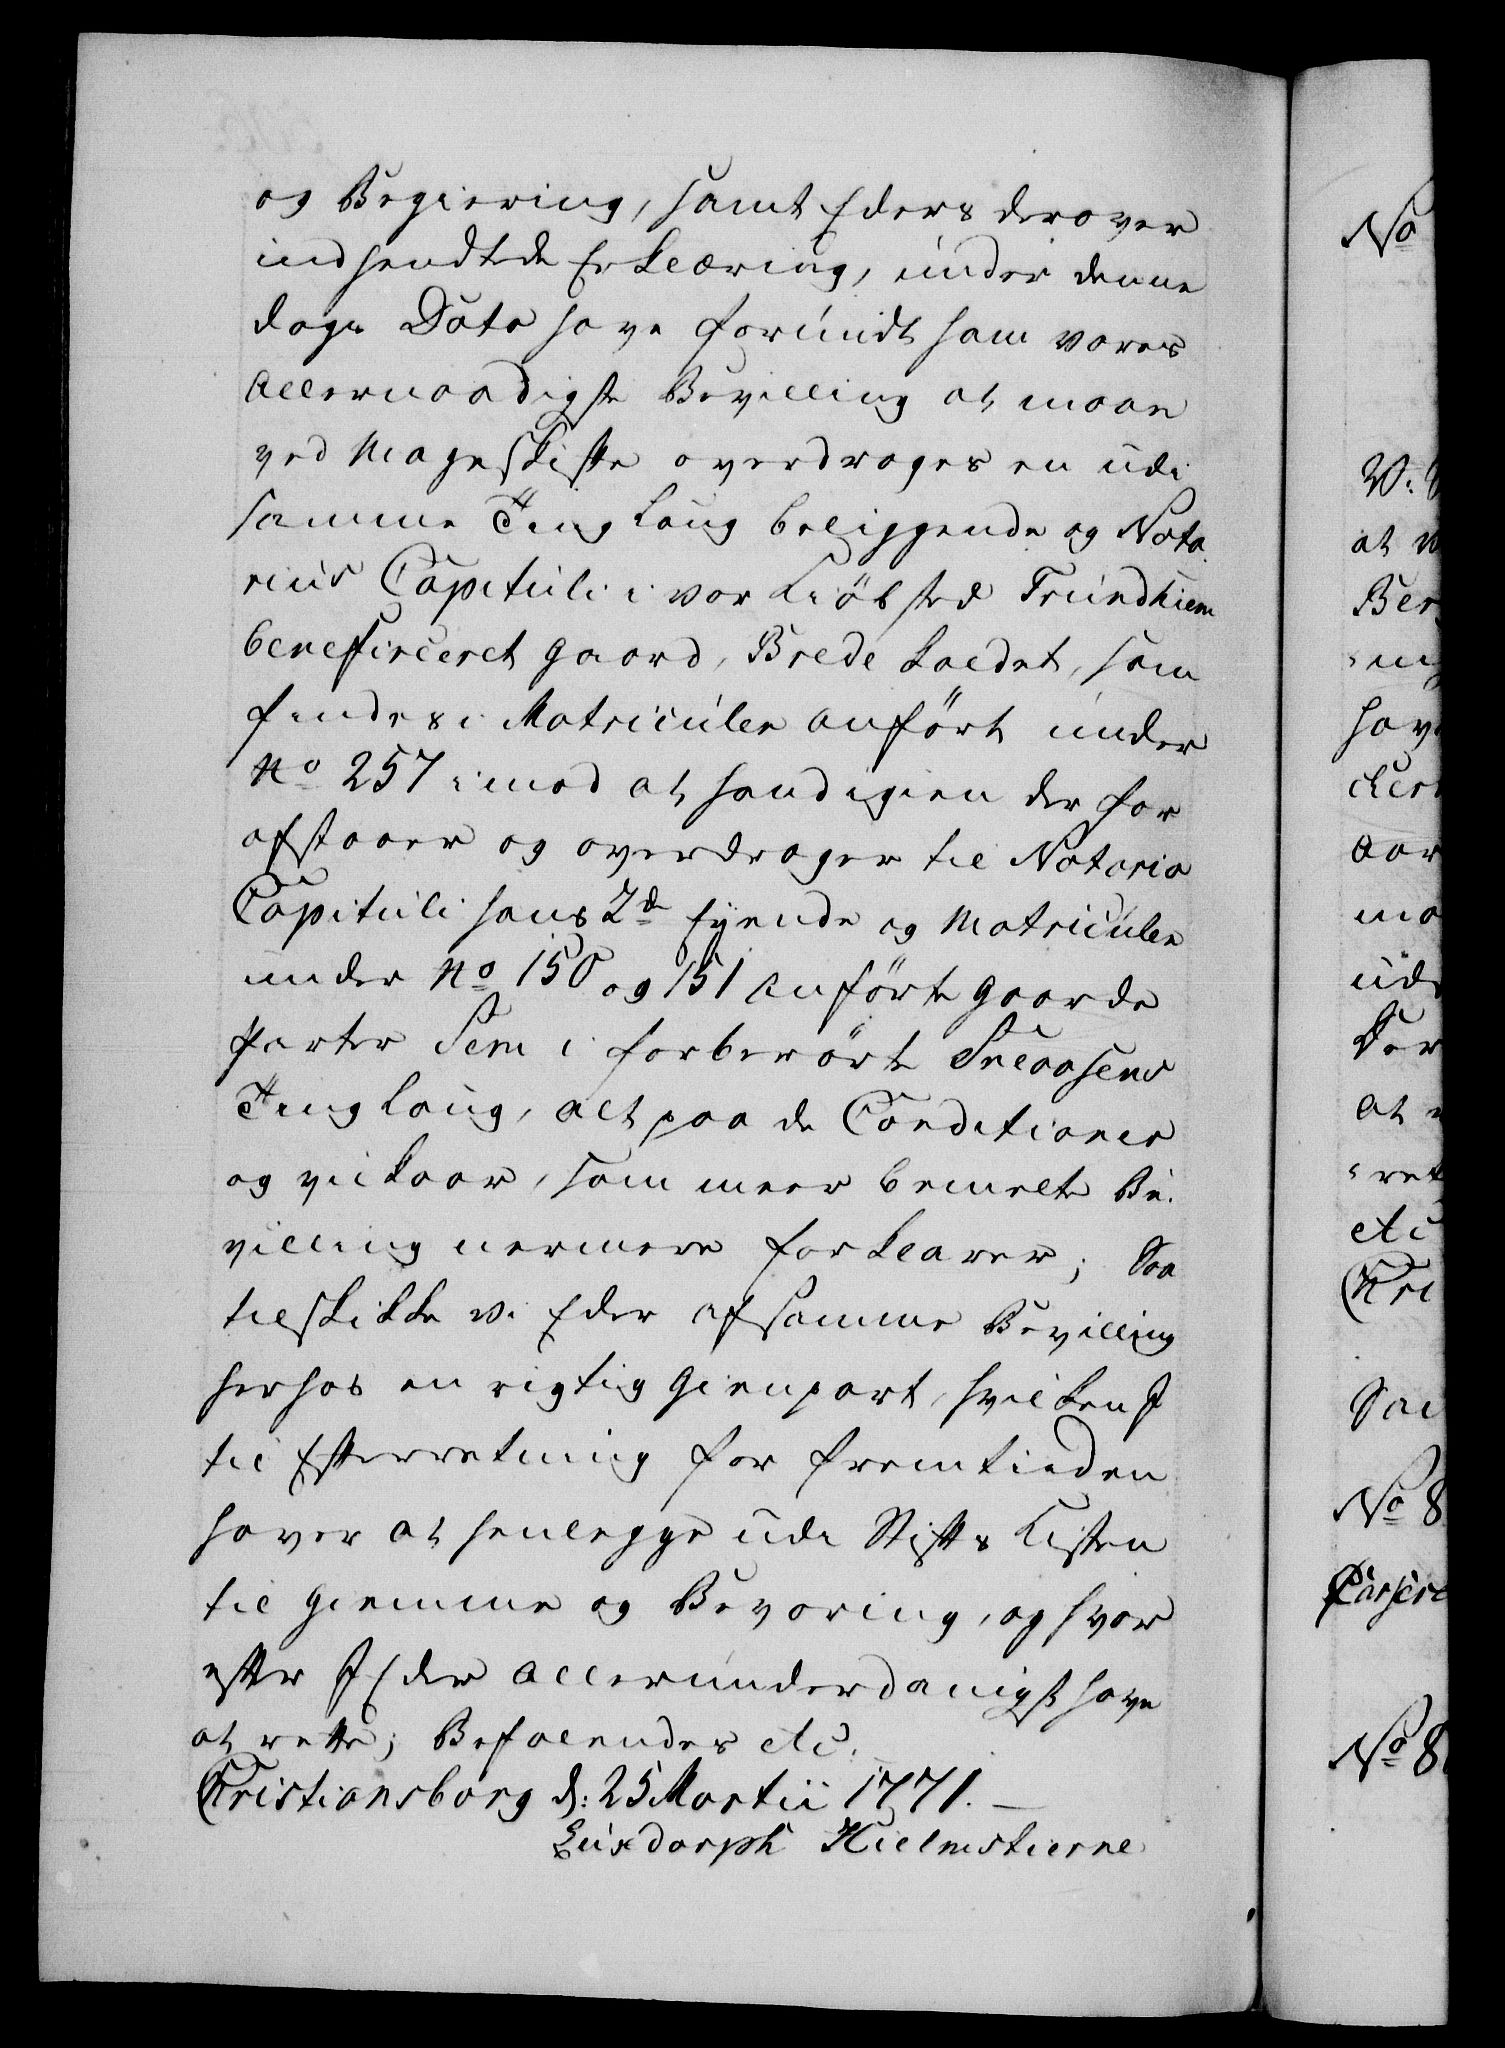 og Begiering, samt Eders derover
indsendtede Erklæring, under denne
dags Dato have forundt ham vores
allernaadigste Bevilling at maae
ved Mageskifte overdrages en udi
samme Tinglaug beliggende og Nota-
rius Capituli i vor Kiöbsted Trundhiem
beneficeret gaard, Brede kaldet, som
findes i Matriculen anfört under
No 257 imod at hand igien der for
afstaaer og overdrager til Notario
Capituli hans 2de Eyende og Matriculen
under No 150 og 151 anförte gaarde
parter Sem i forberörte Sneaasens
Tinglaug, alt paa de Conditioner
og vilkaar, som meer bemelte Be-
villing nermere forklarer; Saa
tilskikke vi Eder af samme Bevilling
herhos en rigtig Gienpart, hvilken I
til Efterretning for fremtieden
haver at henlegge udi Stifts Kisten
til Giemme og Bevaring, og hvor
efter I Eder allerunderdanigst have
at rette; Befalendes etc.
Christiansborg d: 25 Martii 1771.
Luxdorph Hielmstierne
No
W:
at
Ber
hav
aar
ma
udi
at
ret
etc
Chri
Sai
No 8
No 8